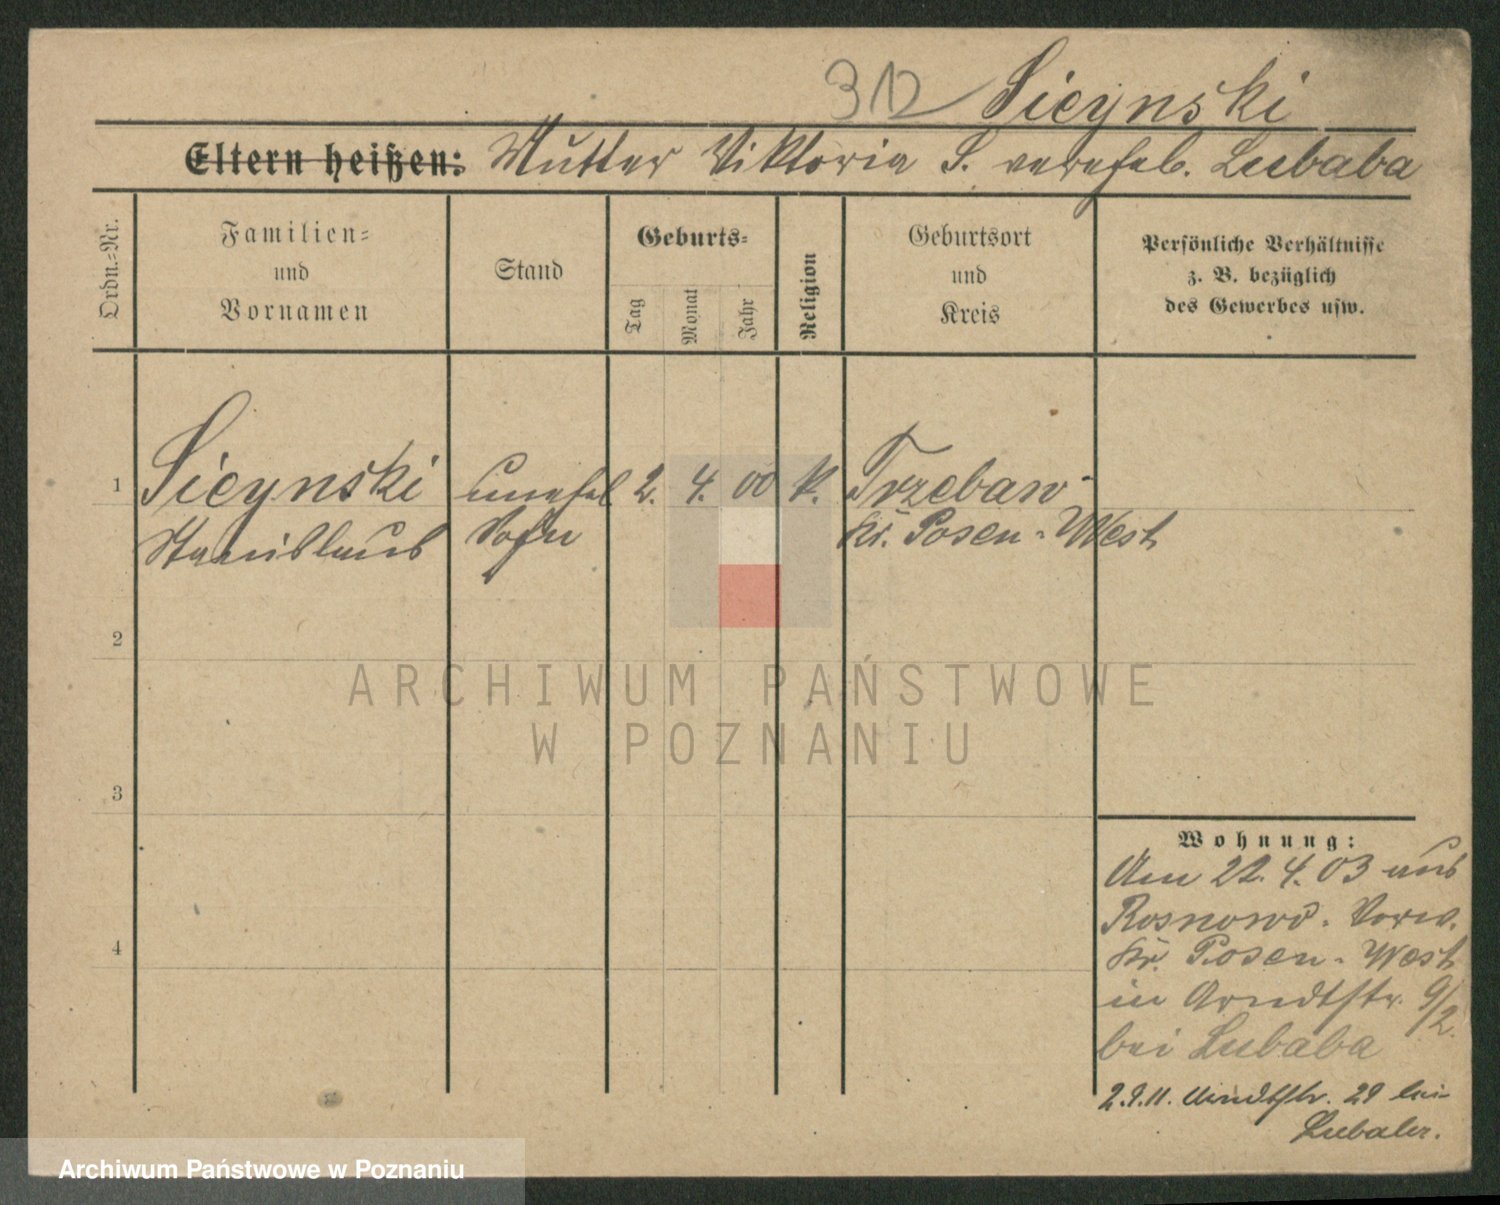 312 Sieynski
Eltern heißen: Mutter Viktoria S. verehel. Lubaba
Ordn.-Nr.
Familien-
und
Vornamen
Stand
Geburts-
Tag
Monat
Jahr
Religion
Geburtsort
und
Kreis
Persönliche Verhältnisse
z. B. bezüglich
des Gewerbes usw.
1 Sieynski unehel. 2. 4. 00 k. Trzebaw
Stanislaus Sohn Kr. Posen-West
2
3
4
Wohnung:
Am 22. 4. 03 aus
Rosnowo. Vorw.
Kr. Posen-West
in Arndtstr. 9/2.
bei Lubaba
2.9.11. Arndtstr. 29 bei
Lubaba.
ARCHIWUM PAŃSTWOWE
W POZNANIU
Archiwum Państwowe w Poznaniu